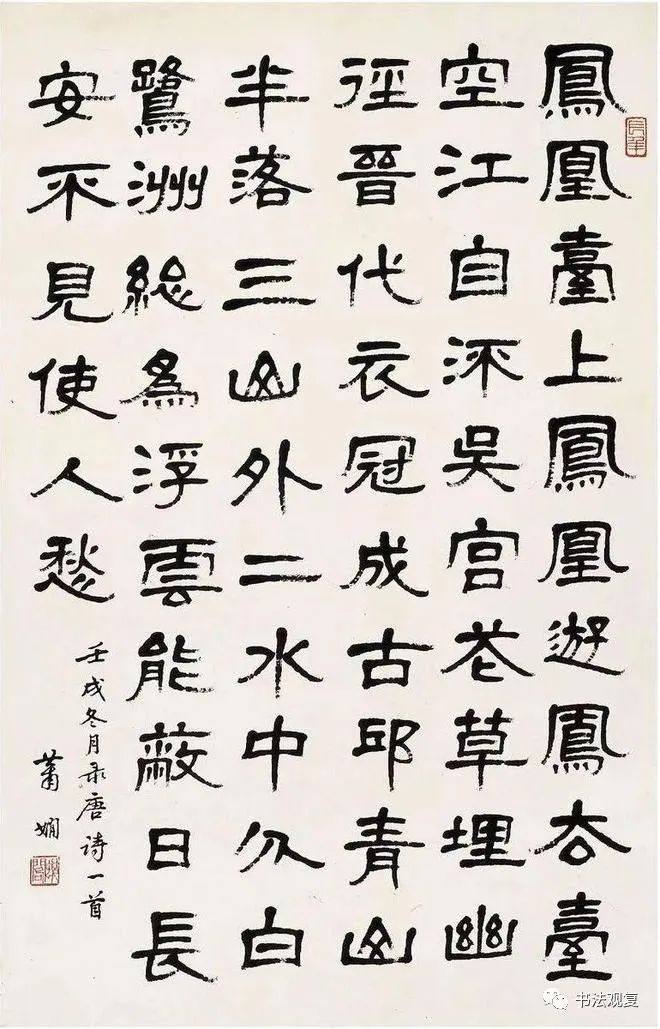 鳳凰臺上鳳凰遊鳳去臺
空江自流吳宮花草埋幽
徑晉代衣冠成古邱青山
半落三山外二水中分白
鷺洲総為浮雲能蔽日長
安不見使人愁
壬戌冬月录唐诗一首
蕭嫻
书法观复